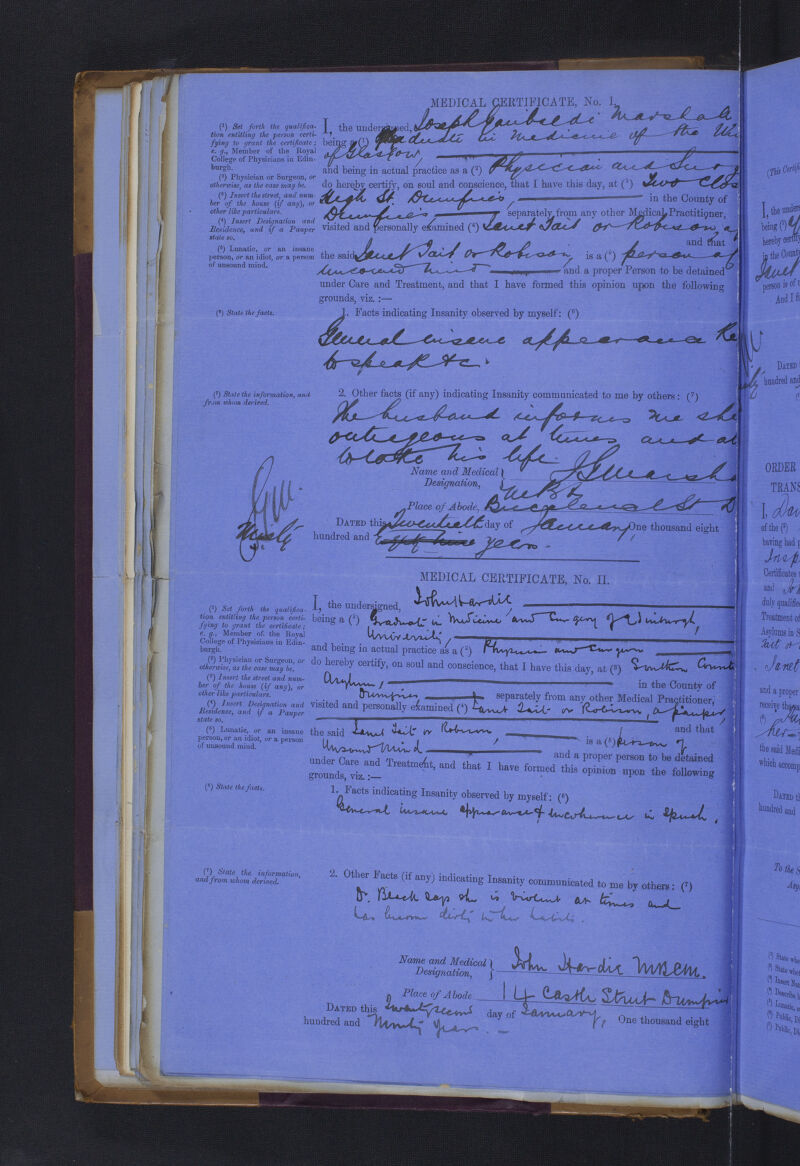 MEDICAL CERTIFICATE, No. I.
(¹) Set forth the qualifica-
tion entitling the person certi-
fying to grant the certificate;
e. g., Member of the Royal
College of Physicians in Edin-
burgh.
(²) Physician or Surgeon, or
otherwise, as the case may be.
(³) Insert the street, and num-
ber of the house (if any), or
other like particulars.
(⁴) Insert Designation and
Residence, and if a Pauper
state so.
(⁵) Lunatic, or an insane
person, or an idiot, or a person
of unsound mind.
I, the undersigned, Joseph Garibaldi Marshall
being a (¹) Graduate in Medicine of the
of Glasgow,
and being in actual practice as a (²) Physician and
do hereby certify, on soul and conscience, that I have this day, at (³) Two Clos
High St. Dumfries, in the County of
Dumfries separately from any other Medical Practitioner,
visited and personally examined (⁴) Janet Tait or Robison, a
and that
the said Janet Tait or Robison, is a (⁵) person of
mind and a proper Person to be detained
under Care and Treatment, and that I have formed this opinion upon the following
grounds, viz. :—
(⁶) State the facts.
1. Facts indicating Insanity observed by myself: (⁶)
General insane appearance
to speak &c.
(⁷) State the information, and
from whom derived.
2. Other facts (if any) indicating Insanity communicated to me by others: (⁷)
The husband informs me she
outrageous at times and
to take his life
Name and Medical
Designation, J G Marsh
M B
Place of Abode, Buccleuch St D
DATED this Twentieth day of January, One thousand eight
hundred and years.
Ninety
MEDICAL CERTIFICATE, No. II.
(¹) Set forth the qualifica-
tion entitling the person certi-
fying to grant the certificate;
e. g., Member of the Royal
College of Physicians in Edin-
burgh.
(²) Physician or Surgeon, or
otherwise, as the case may be.
(³) Insert the street and num-
ber of the house (if any), or
other like particulars.
(⁴) Insert Designation and
Residence, and if a Pauper
state so.
(⁵) Lunatic, or an insane
person, or an idiot, or a person
of unsound mind.
I, the undersigned, John Hardie
being a (¹) Graduate in Medicine and Surgery of Edinburgh,
University,
and being in actual practice as a (²) Physician and Surgeon
do hereby certify, on soul and conscience, that I have this day, at (³) Southern Counti
Asylum, in the County of
Dumfries, separately from any other Medical Practitioner,
visited and personally examined (⁴) Janet Tait or Robison, a pauper,
and that
the said Janet Tait or Robison, is a (⁵) person of
unsound mind and a proper person to be detained
under Care and Treatment, and that I have formed this opinion upon the following
grounds, viz. :—
(⁶) State the facts.
1. Facts indicating Insanity observed by myself: (⁶)
General insane appearance & incoherence in speech.
(⁷) State the information,
and from whom derived.
2. Other Facts (if any) indicating Insanity communicated to me by others: (⁷)
Dr. Beach says she is violent at times and
has become dirty in her habits.
Name and Medical
Designation, John Hardie MB CM.
Place of Abode 14 Castle Street Dumfries
DATED this Twenty second day of January, One thousand eight
hundred and Ninety years.
(This Certif
I, the under
being (¹)
hereby certif
in the Count
Janet
person is of
And I f
DATED
hundred and
ORDER
TRANS
I, Dav
of the (²)
having had
Josep
Certificates
and Jo
duly qualifie
Treatment of
Asylums in S
Tait or
Janet
and a proper
receive the
her
the said Medi
which accomp
DATED t
hundred and
To the S
Asy
(¹) State whe
(²) State wher
(³) Insert Na
(⁴) Describe
(⁵) Lunatic,
(⁶) Public, Di
(⁷) Public, Di